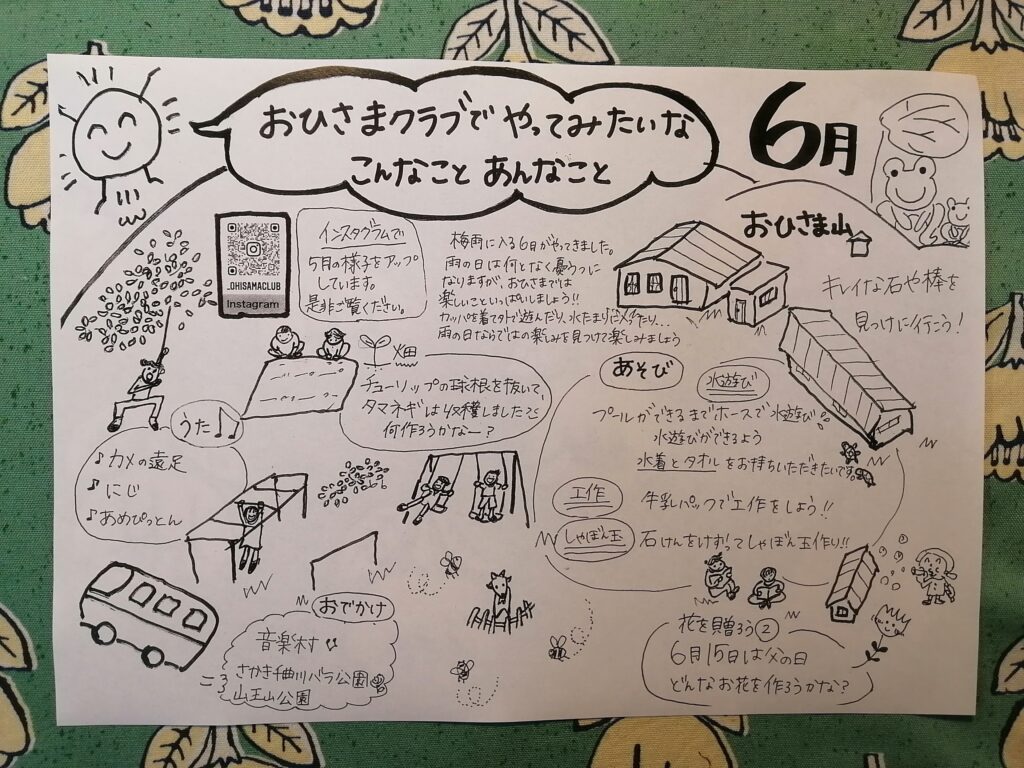 おひさまクラブで やってみたいな
こんなこと あんなこと
6月
おひさま山
_OHISAMACLUB
Instagram
インスタグラムで
5月の様子をアップ
しています。
是非ご覧ください。
梅雨に入る6月がやってきました。
雨の日は何となく憂うつに
なりますが、おひさまでは
楽しいこといっぱいしましょう!!
カッパを着て外で遊んだり、水たまりに入ったり…
雨の日ならではの楽しみを見つけて楽しみましょう
キレイな石や棒を
見つけに行こう!
畑
チューリップの球根を抜いて、
タマネギは収穫しました
何作ろうかなー?
うた♫
♪カメの遠足
♪にじ
♪あめぴっとん
あそび
水遊び
プールができるまでホースで水遊び
水遊びができるよう
水着とタオルをお持ちいただきたいです。
工作
牛乳パックで工作をしよう!!
しゃぼん玉
石けんをけずってしゃぼん玉作り!!
おでかけ
音楽村
さかき千曲川バラ公園
山王山公園
花を贈ろう②
6月15日は父の日
どんなお花を作ろうかな?